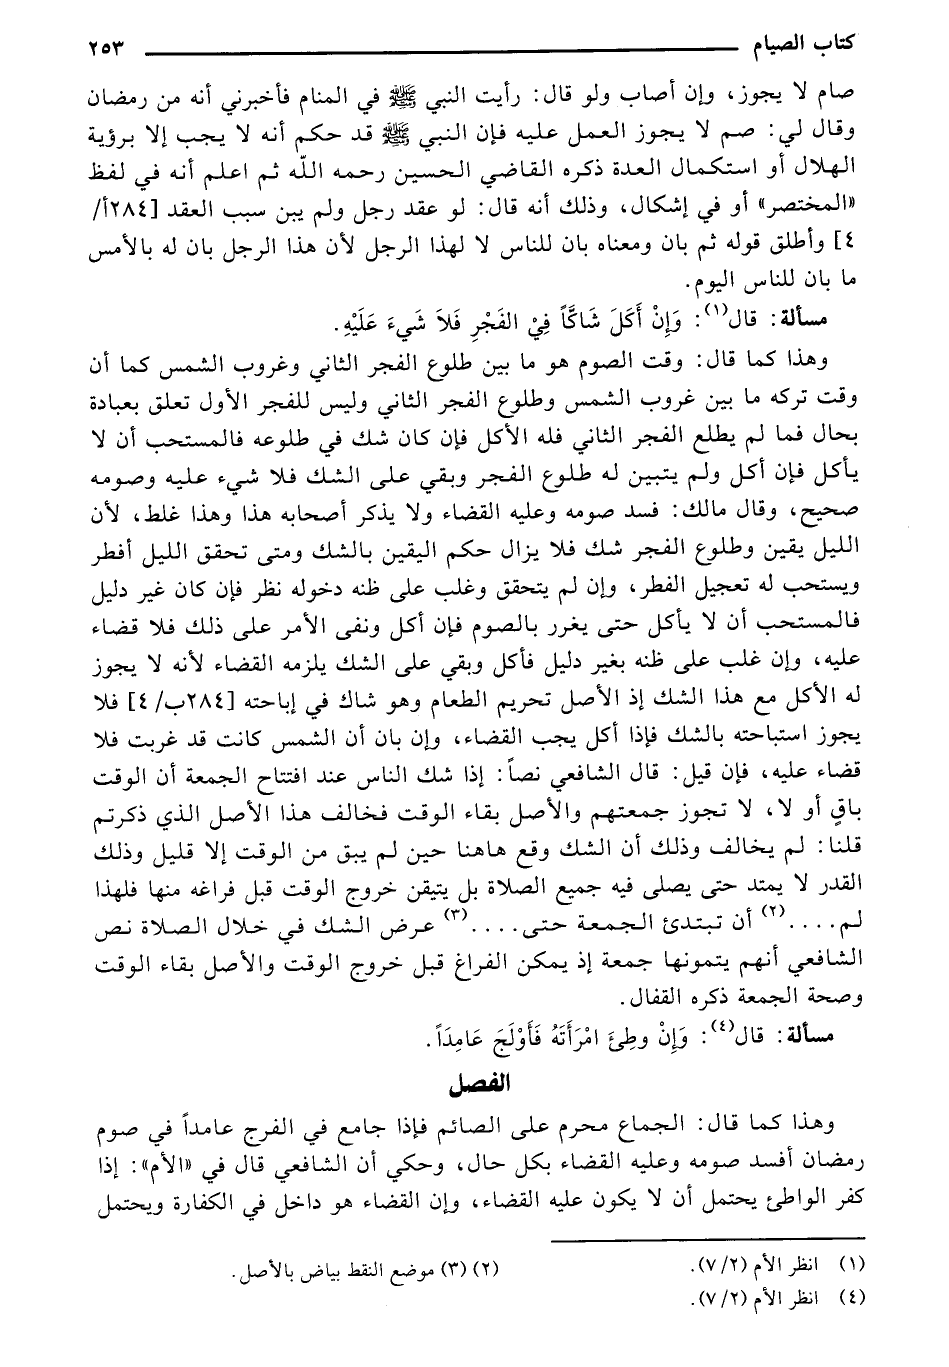 كتاب الصيام ٢٥٣
صام لا يجوز، وإن أصاب ولو قال: رأيت النبي ﷺ في المنام فأخبرني أنه من رمضان
وقال لي: صم لا يجوز العمل عليه فإن النبي ﷺ قد حكم أنه لا يجب إلا برؤية
الهلال أو استكمال العدة ذكره القاضي الحسين رحمه الله ثم اعلم أنه في لفظ
«المختصر» أو في إشكال، وذلك أنه قال: لو عقد رجل ولم يبن سبب العقد [٢٨٤أ/
٤] وأطلق قوله ثم بان ومعناه بان للناس لا لهذا الرجل لأن هذا الرجل بان له بالأمس
ما بان للناس اليوم.
مسألة: قال(١): وَإِنْ أَكَلَ شَاكَّاً فِيْ الفَجْرِ فَلَا شَيءَ عَلَيْهِ.
وهذا كما قال: وقت الصوم هو ما بين طلوع الفجر الثاني وغروب الشمس كما أن
وقت تركه ما بين غروب الشمس وطلوع الفجر الثاني وليس للفجر الأول تعلق بعبادة
بحال فما لم يطلع الفجر الثاني فله الأكل فإن كان شك في طلوعه فالمستحب أن لا
يأكل فإن أكل ولم يتبين له طلوع الفجر وبقي على الشك فلا شيء عليه وصومه
صحيح، وقال مالك: فسد صومه وعليه القضاء ولا يذكر أصحابه هذا وهذا غلط، لأن
الليل يقين وطلوع الفجر شك فلا يزال حكم اليقين بالشك ومتى تحقق الليل أفطر
ويستحب له تعجيل الفطر، وإن لم يتحقق وغلب على ظنه دخوله نظر فإن كان غير دليل
فالمستحب أن لا يأكل حتى يغرر بالصوم فإن أكل ونفى الأمر على ذلك فلا قضاء
عليه، وإن غلب على ظنه بغير دليل فأكل وبقي على الشك يلزمه القضاء لأنه لا يجوز
له الأكل مع هذا الشك إذ الأصل تحريم الطعام وهو شاك في إباحته [٢٨٤ب/ ٤] فلا
يجوز استباحته بالشك فإذا أكل يجب القضاء، وإن بان أن الشمس كانت قد غربت فلا
قضاء عليه، فإن قيل: قال الشافعي نصاً: إذا شك الناس عند افتتاح الجمعة أن الوقت
باقٍ أو لا، لا تجوز جمعتهم والأصل بقاء الوقت فخالف هذا الأصل الذي ذكرتم
قلنا: لم يخالف وذلك أن الشك وقع هاهنا حين لم يبق من الوقت إلا قليل وذلك
القدر لا يمتد حتى يصلى فيه جميع الصلاة بل يتيقن خروج الوقت قبل فراغه منها فلهذا
لم....(٢) أن تبتدئ الجمعة حتى....(٣) عرض الشك في خلال الصلاة نص
الشافعي أنهم يتمونها جمعة إذ يمكن الفراغ قبل خروج الوقت والأصل بقاء الوقت
وصحة الجمعة ذكره القفال.
مسألة: قال(٤): وَإِنْ وطِئَ امْرَأَتَهُ فَأَوْلَجَ عَامِدَاً.
الفصل
وهذا كما قال: الجماع محرم على الصائم فإذا جامع في الفرج عامداً في صوم
رمضان أفسد صومه وعليه القضاء بكل حال، وحكي أن الشافعي قال في «الأم»: إذا
كفر الواطئ يحتمل أن لا يكون عليه القضاء، وإن القضاء هو داخل في الكفارة ويحتمل
(١) انظر الأم (٢/ ٧). (٢) (٣) موضع النقط بياض بالأصل.
(٤) انظر الأم (٢/ ٧).